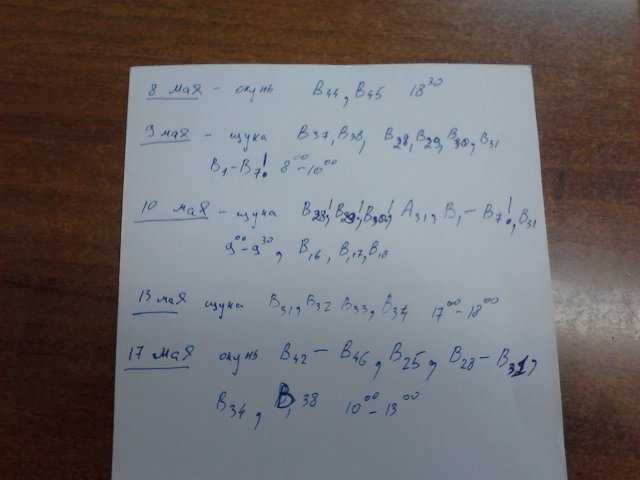 8 мая - окунь B44, B45 18³⁰
9 мая - щука B37, B38, B28, B29, B30, B31
B1-B7! 8⁰⁰-10⁰⁰
10 мая - щука B28!, B29!, B30!, A31, B1-B7!, B31
9⁰⁰-9³⁰, B16, B17, B18
13 мая щука B31, B32 B33, B34 17⁰⁰-18⁰⁰
17 мая окунь B42-B46, B25, B28-B31,
B34, B38 10⁰⁰-13⁰⁰